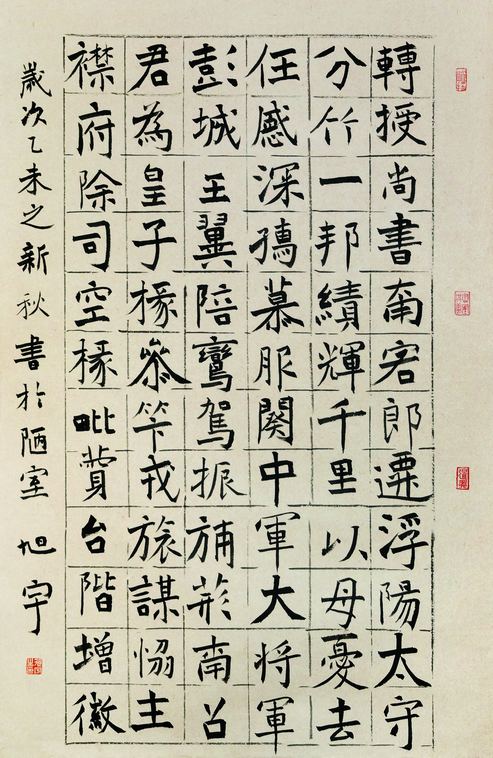 轉授尚書南客郎遷浮陽太守
分竹一邦績輝千里以母憂去
任感深孺慕服闋中軍大将軍
彭城王翼陪鸞駕振旆荊南召
君為皇子掾叅笇戎旅謀恊主
襟府除司空掾毗贊台階增徽
歲次乙未之新秋書於陋室 旭宇